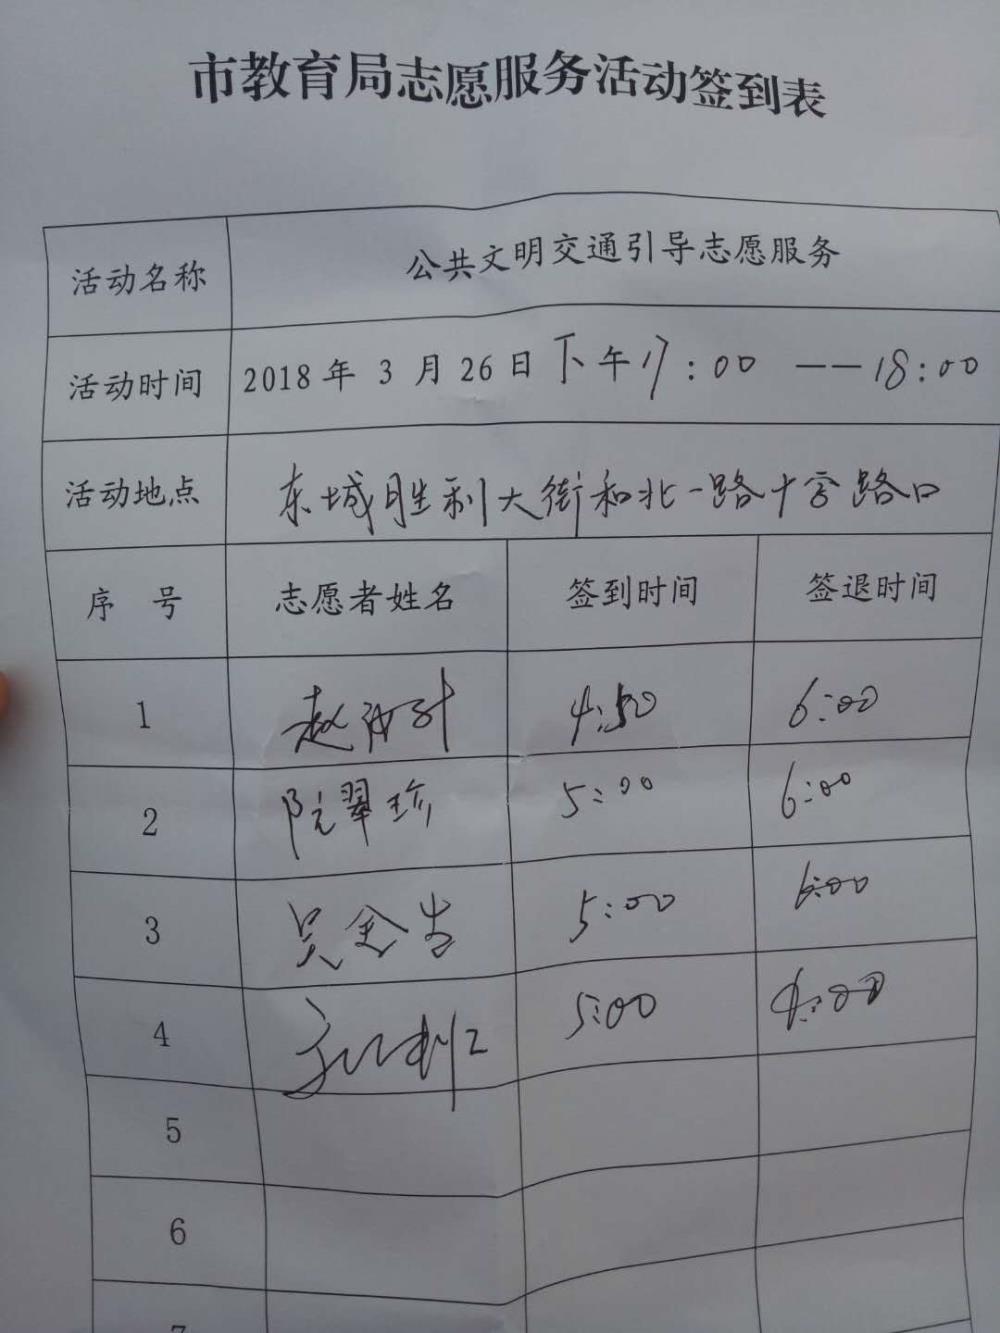 市教育局志愿服务活动签到表
活动名称 公共文明交通引导志愿服务
活动时间 2018年 3 月 26日下午17:00 ——18:00
活动地点 东城胜利大街和北一路十字路口
序 号 志愿者姓名 签到时间 签退时间
1 赵 4:50 6:00
2 阮翠珍 5:00 6:00
3 吴金 5:00 6:00
4 5:00 6:00
5
6
7